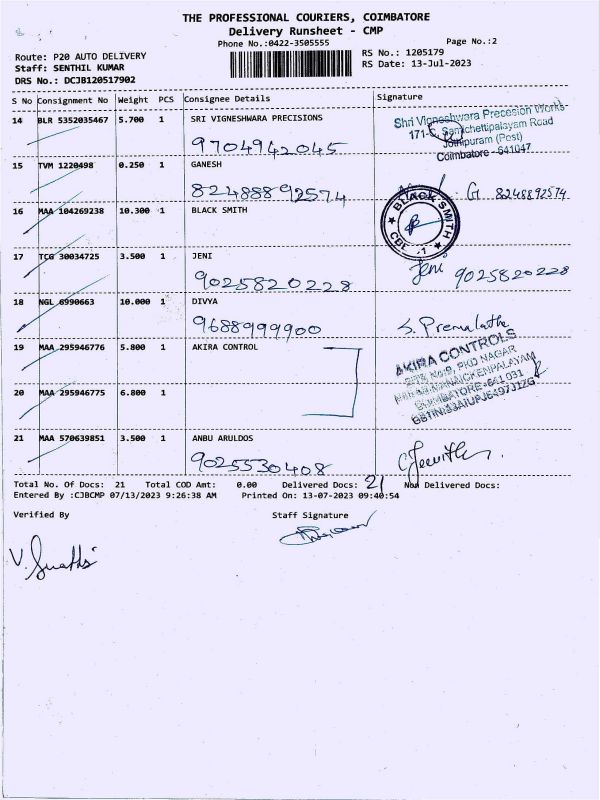 THE PROFESSIONAL COURIERS, COIMBATORE
Delivery Runsheet - CMP
Phone No.:0422-3505555
Page No.:2
Route: P20 AUTO DELIVERY
Staff: SENTHIL KUMAR
DRS No.: DCJB120517902
RS No.: 1205179
RS Date: 13-Jul-2023
S No Consignment No Weight PCS Consignee Details Signature
14 BLR 5352035467 5.700 1 SRI VIGNESHWARA PRECISIONS
9704942045
Shri Vigneshwara Precesion Works
Samichettipalayam Road
Jothipuram (Post)
Coimbatore - 641047
15 TVM 1220498 0.250 1 GANESH
8248892574
G 8248892574
16 MAA 104269238 10.300 1 BLACK SMITH
BLACK SMITH
CBE -1
17 TCG 30034725 3.500 1 JENI
9025820228
Jeni 9025820228
18 NGL 6990663 10.000 1 DIVYA
9688999900
S. Premalatha
19 MAA 295946776 5.800 1 AKIRA CONTROL
AKIRA CONTROLS
PKD NAGAR
COIMBATORE-641 031
20 MAA 295946775 6.800 1
21 MAA 570639851 3.500 1 ANBU ARULDOS
9025530408
Total No. Of Docs: 21 Total COD Amt: 0.00 Delivered Docs: 21 Non Delivered Docs:
Entered By :CJBCMP 07/13/2023 9:26:38 AM Printed On: 13-07-2023 09:40:54
Verified By Staff Signature